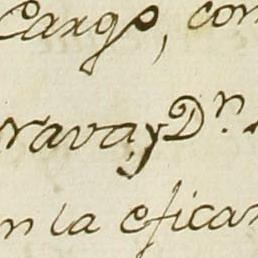 Cargo, con
rava y Dn.
n la efica